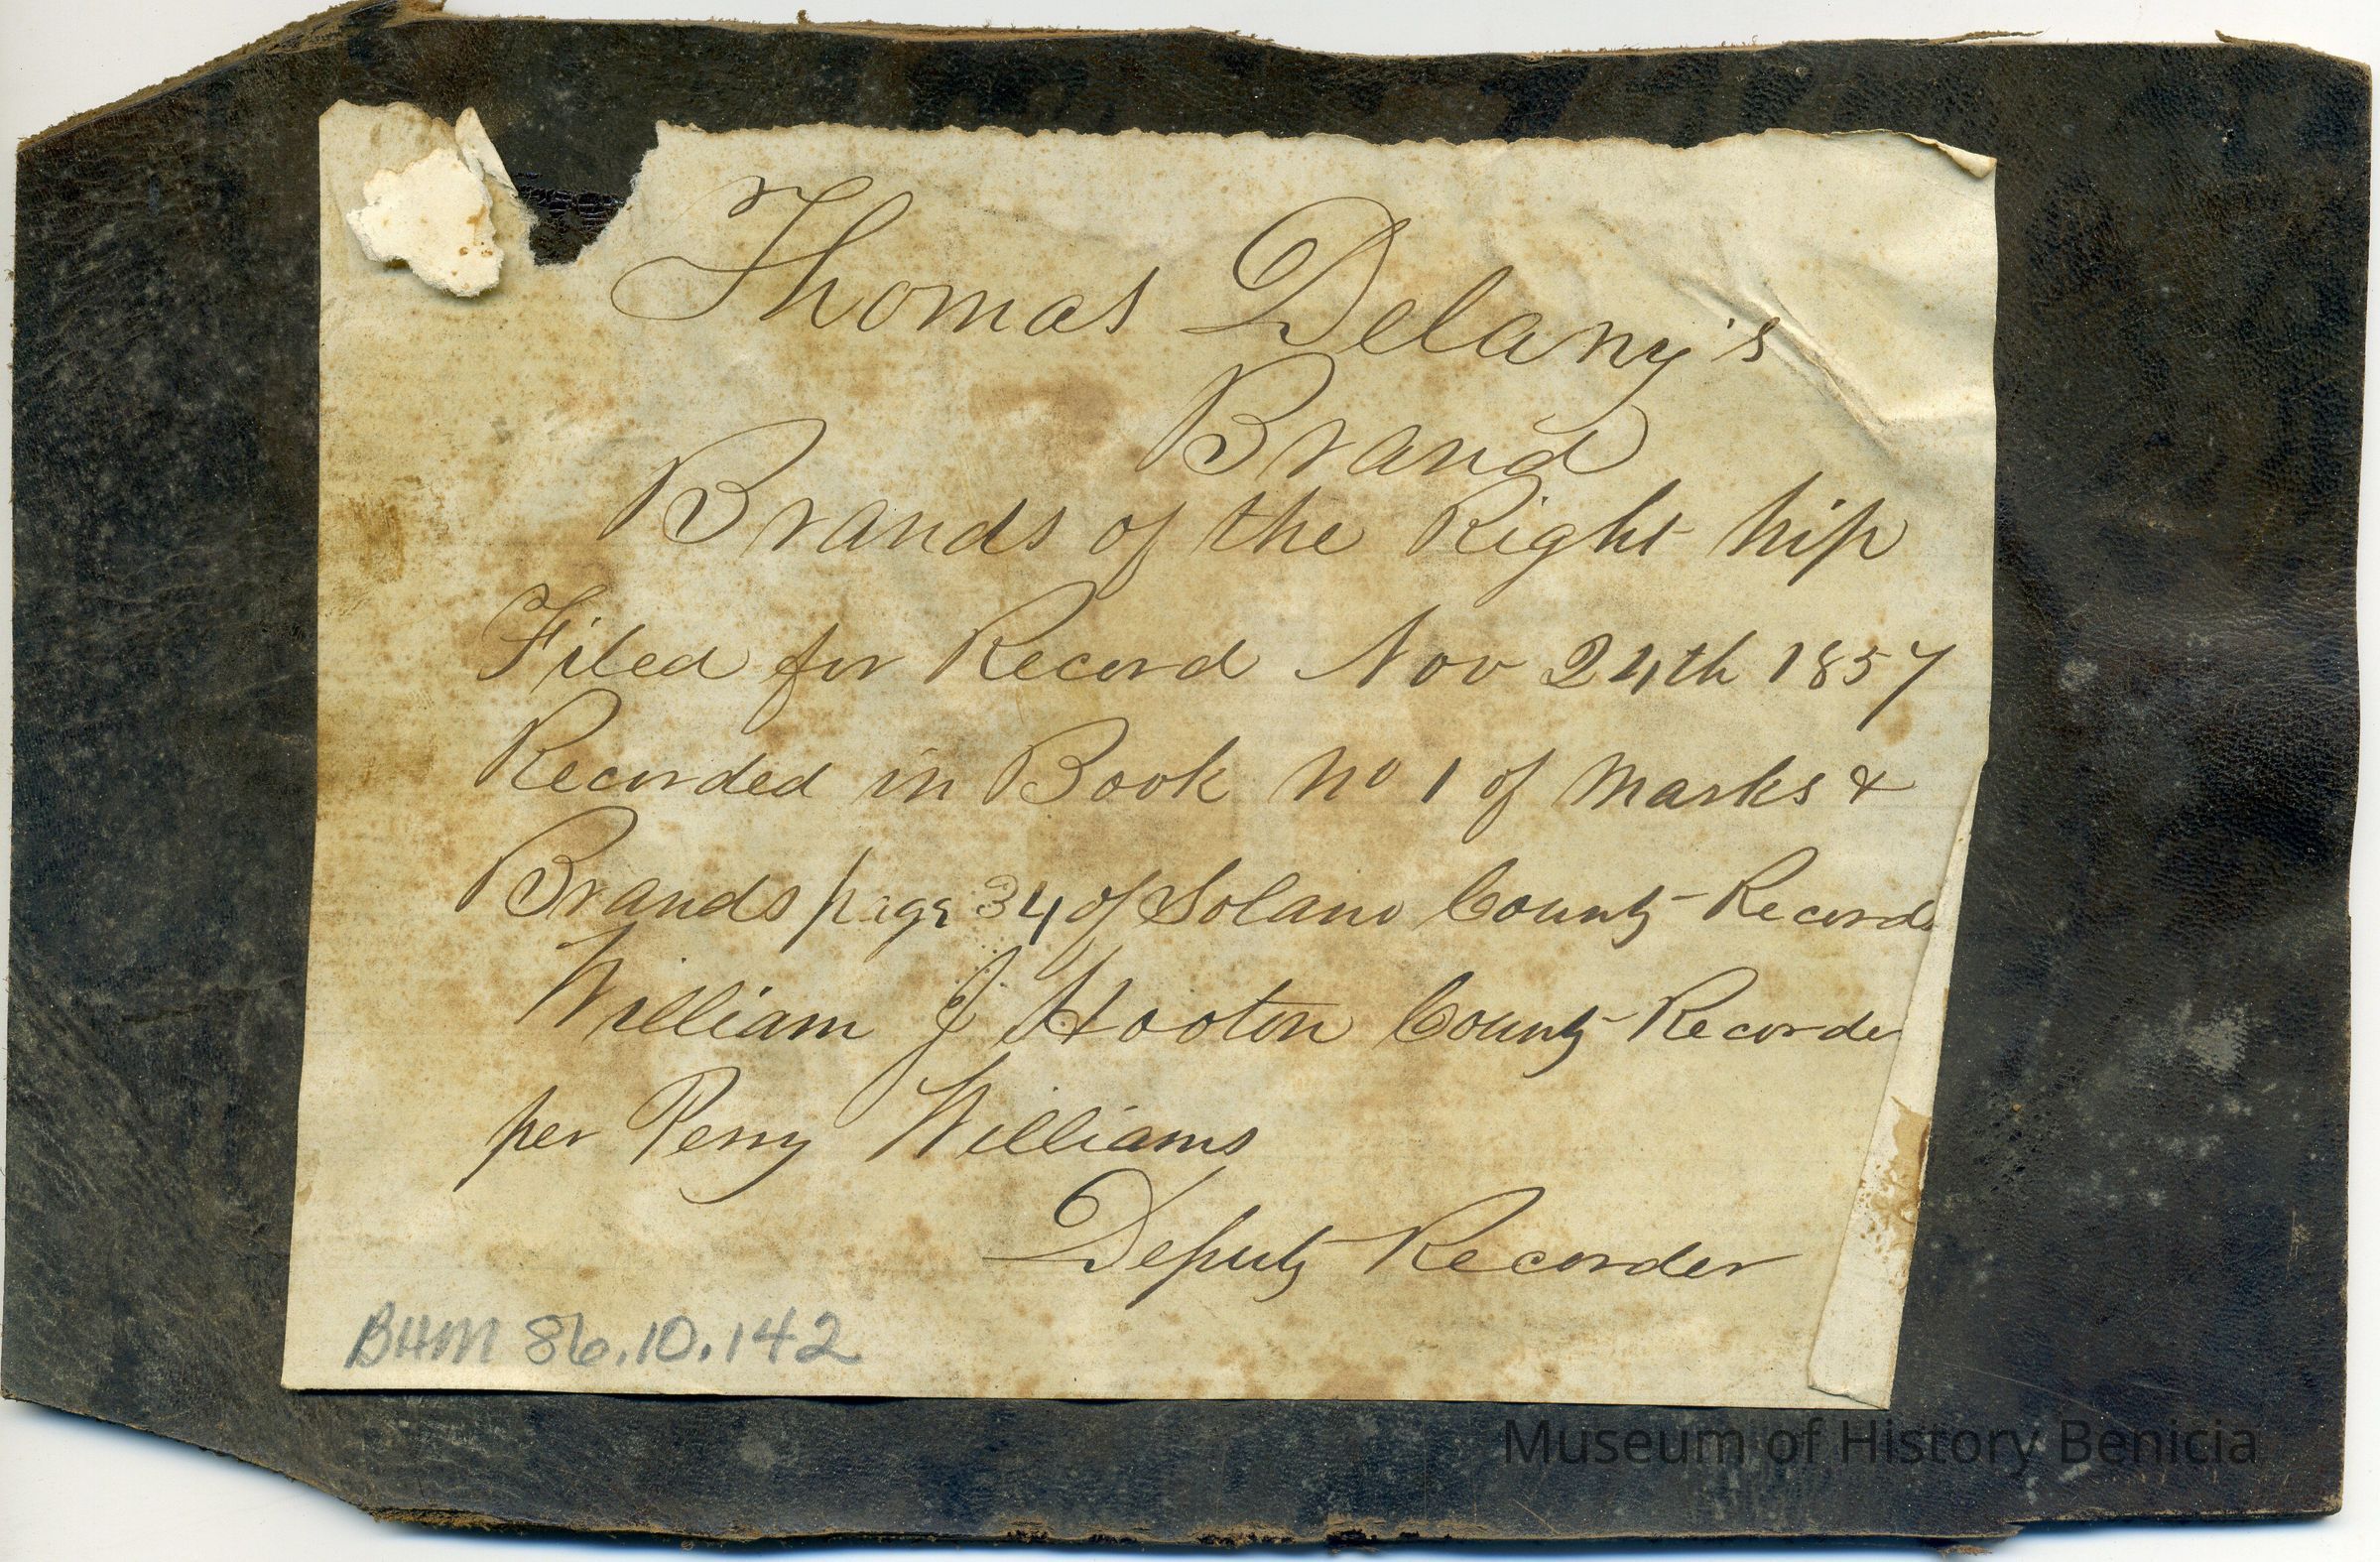 Thomas Delany's
Brand
Brands of the Right hip
Filed for Record Nov 24th 1857
Recorded in Book No 1 of Marks &
Brands page 34 of Solano County Records
William J Hooten County Recorder
per Perry Williams
Deputy Recorder
BHM 86.10.142
Museum of History Benicia